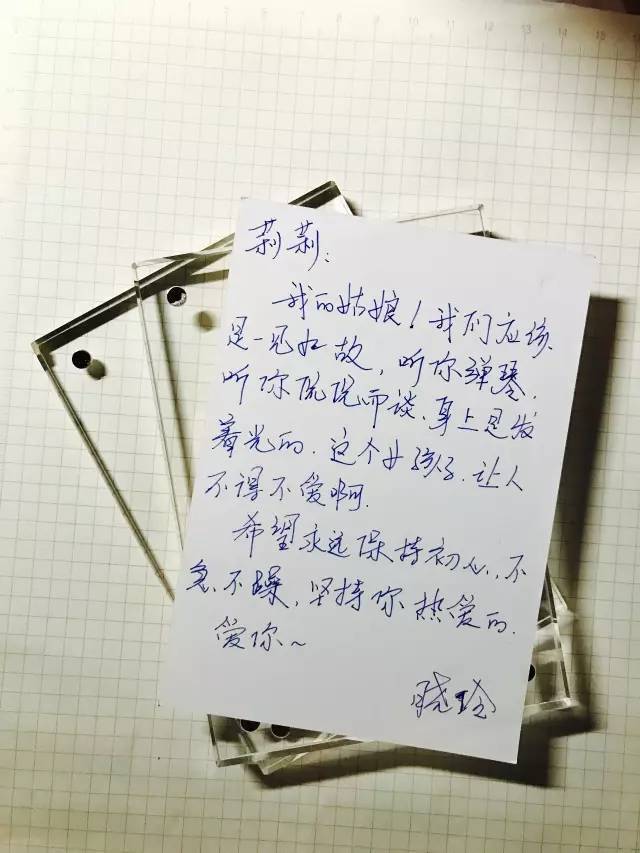 莉莉：
我的姑娘！我们应该
是一见如故，听你弹琴，
听你侃侃而谈、身上是发
着光的．这个女孩子．让人
不得不爱啊．
希望永远保持初心、不
急不躁，坚持你热爱的．
爱你~
晓玲